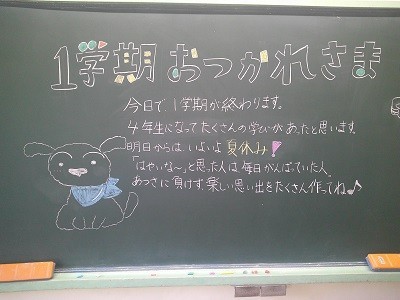 1学期おつかれさま
今日で1学期が終わります。
4年生になってたくさんの学びがあったと思います。
明日からはいよいよ夏休み!
「はやいな~」と思った人は毎日がんばっていた人。
あつさに負けず、楽しい思い出をたくさん作ってね♪